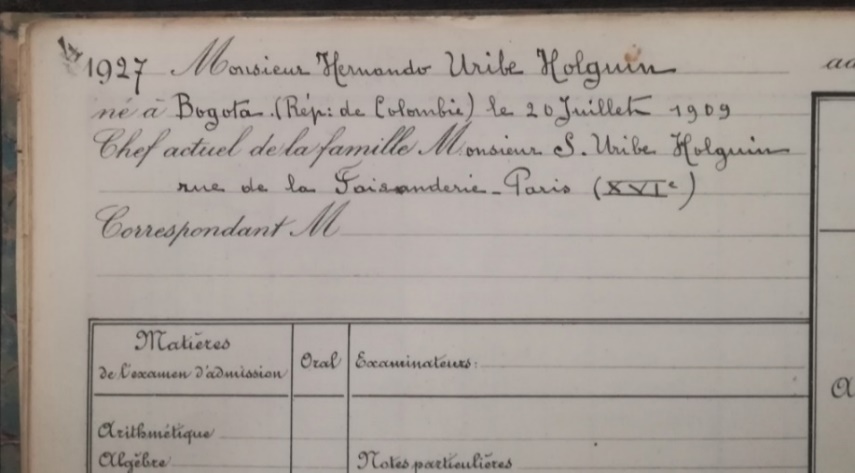 1927 Monsieur Hernando Uribe Holguin
né à Bogota (Rép: de Colombie) le 20 Juillet 1909
Chef actuel de la famille Monsieur S. Uribe Holguin
rue de la Faisanderie - Paris (XVIe)
Correspondant M
Matières
de l'examen d'admission
Oral
Examinateurs:
Arithmétique
Algèbre
Notes particulières